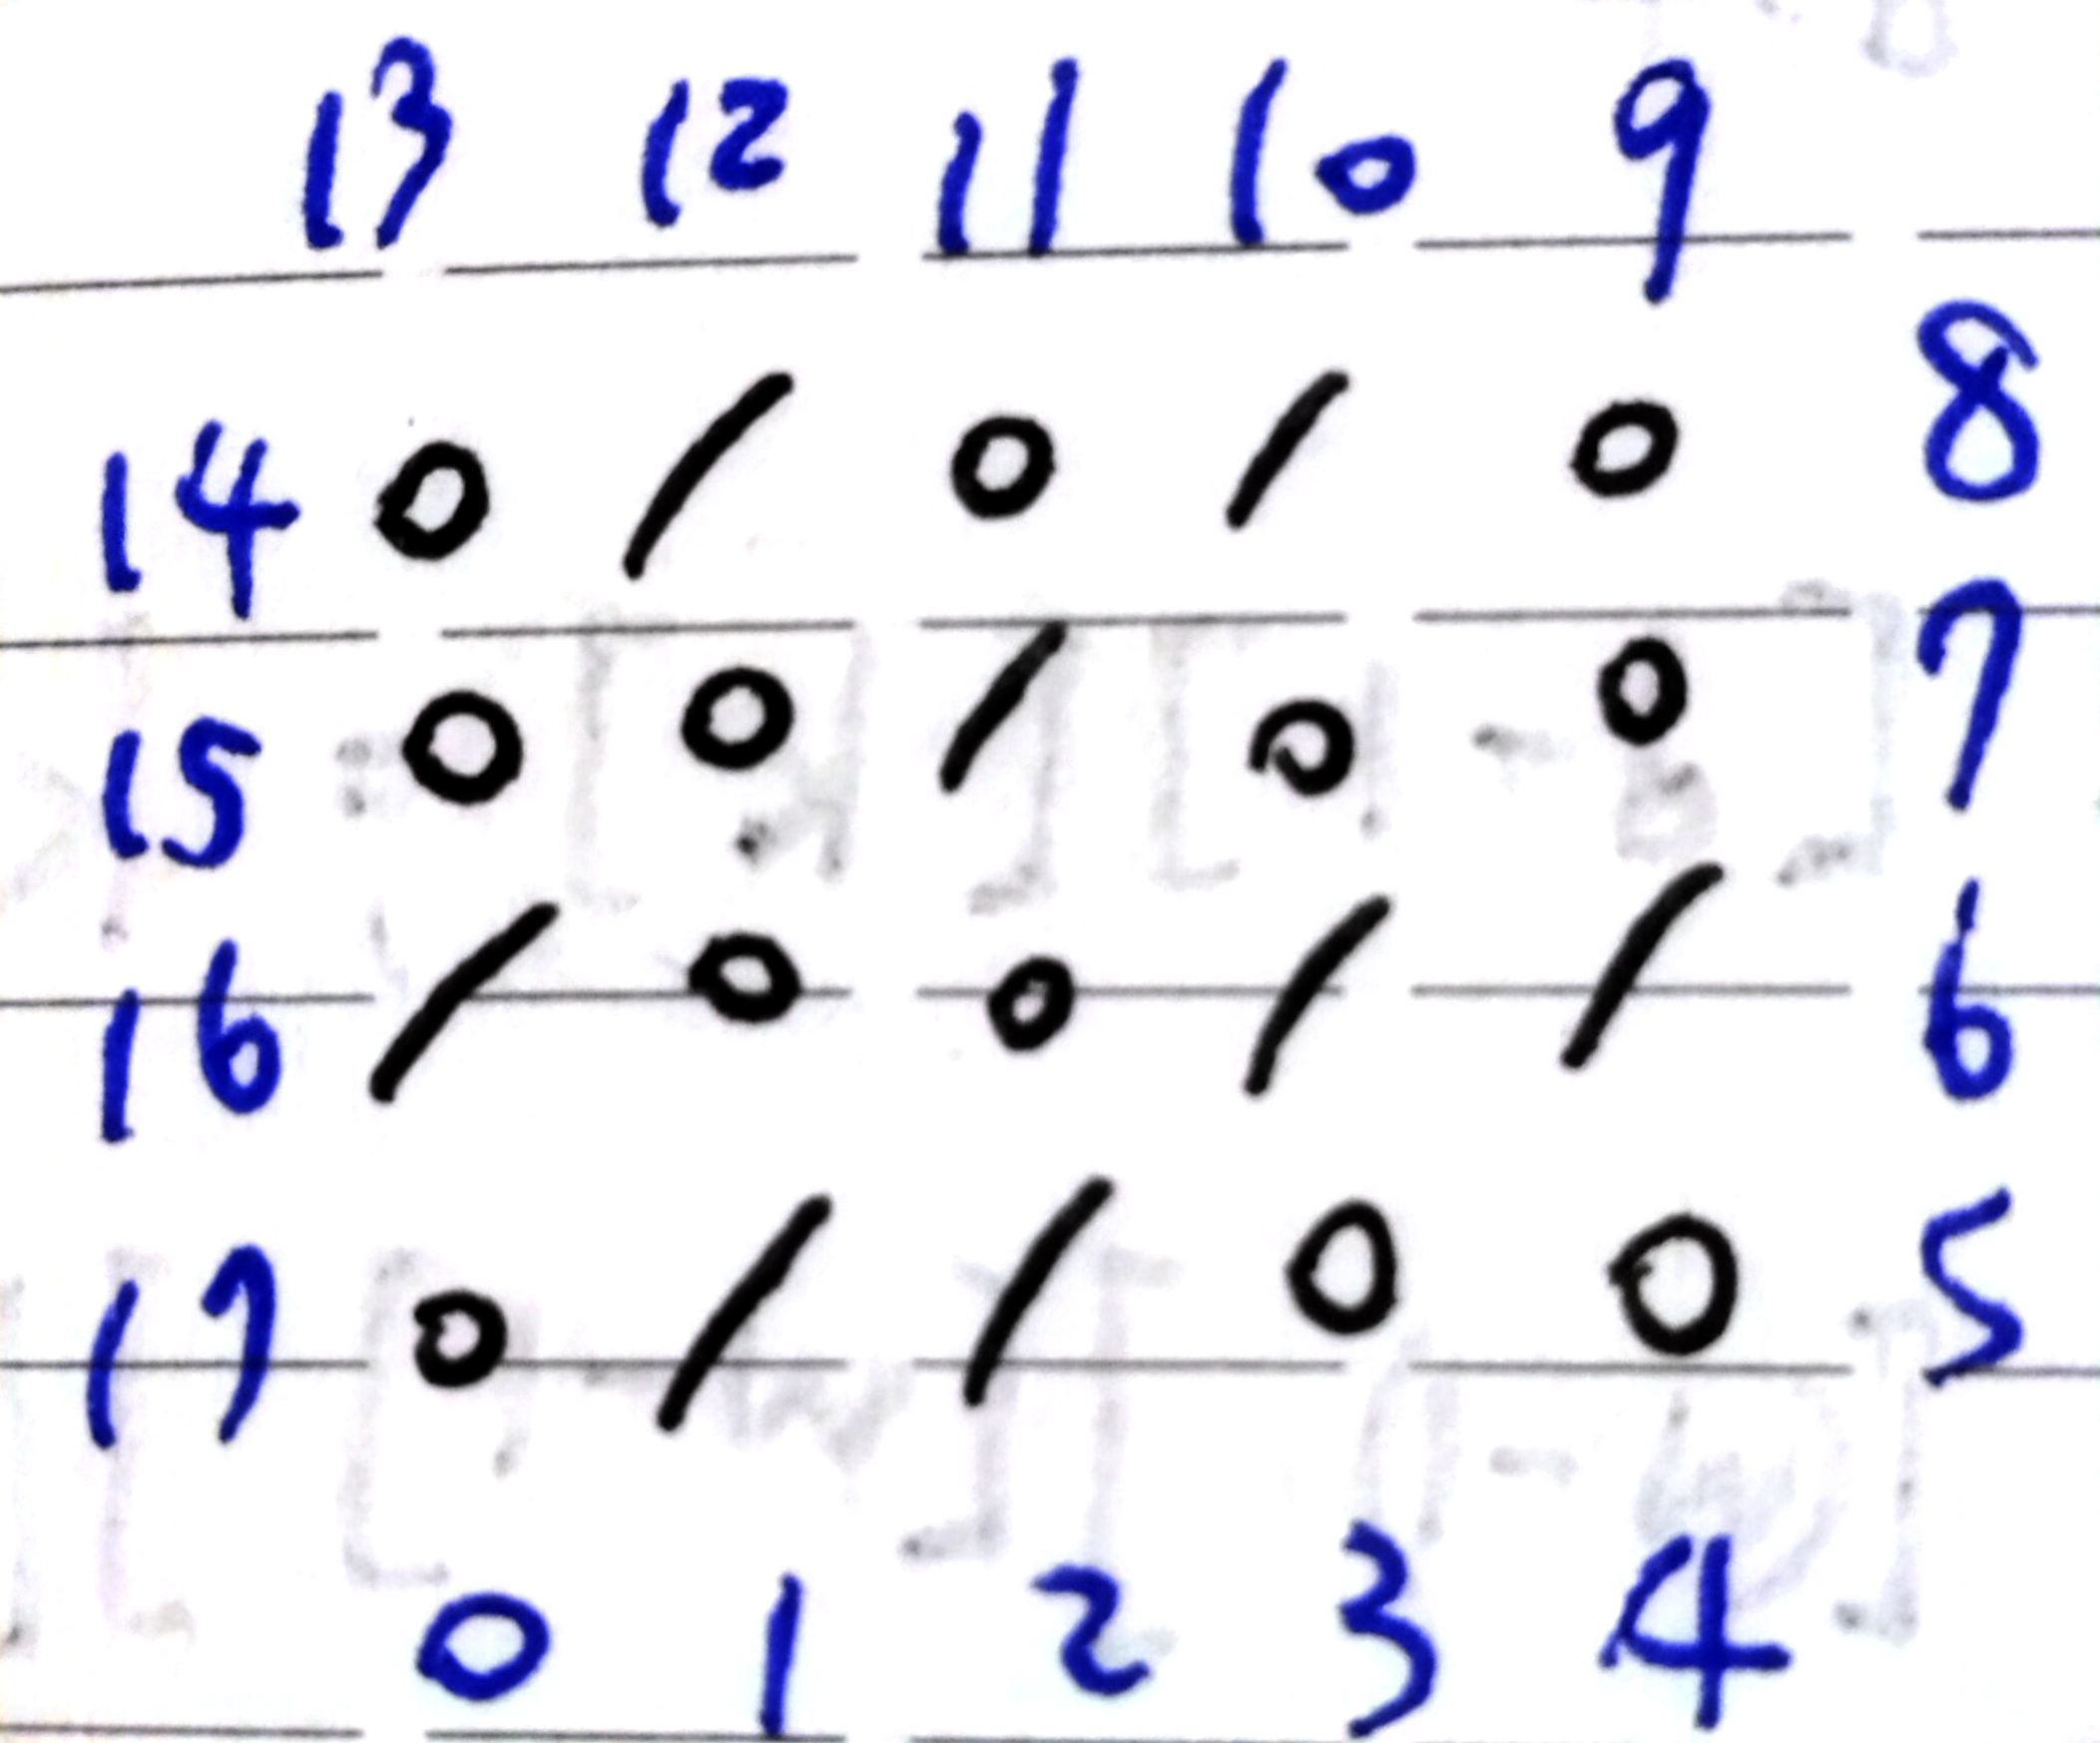 13 12 11 10 9
14 0 / 0 / 0 8
15 0 0 / 0 0 7
16 / 0 0 / / 6
17 0 / / 0 0 5
0 1 2 3 4